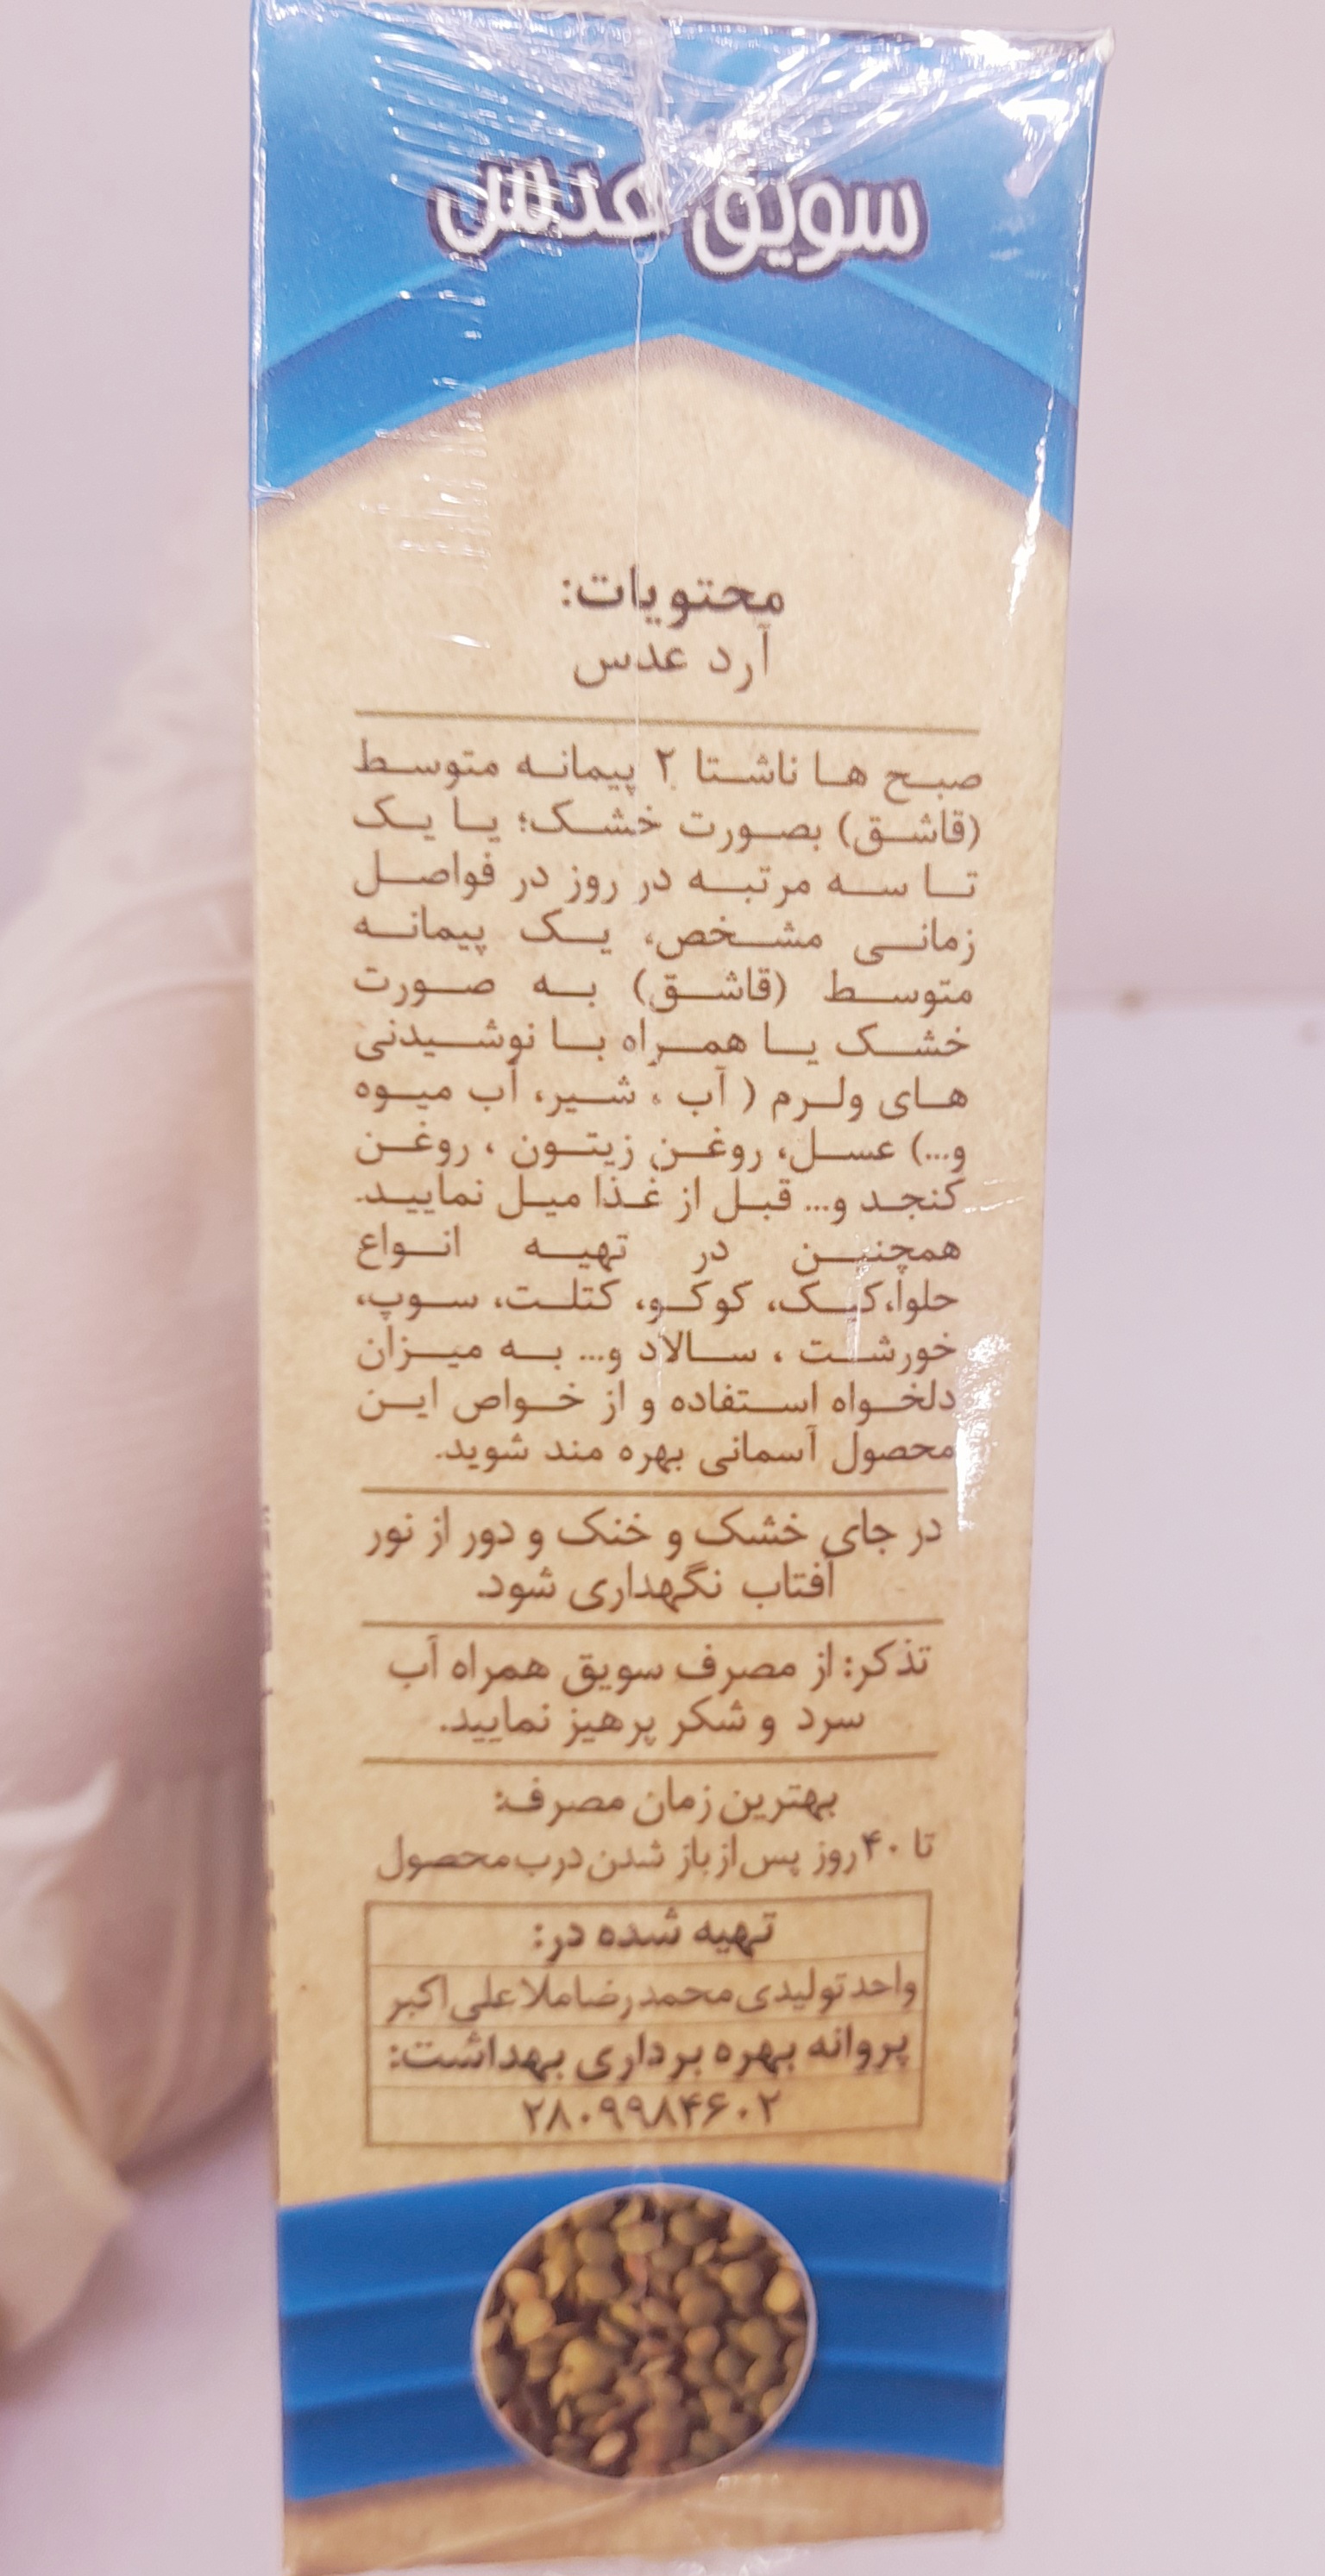 سویق عدس
محتویات:
آرد عدس
صبح ها ناشتا ۲ پیمانه متوسط
(قاشق) بصورت خشک؛ یا یک
تا سه مرتبه در روز در فواصل
زمانی مشخص، یک پیمانه
متوسط (قاشق) به صورت
خشک یا همراه با نوشیدنی
های ولرم ( آب ، شیر، آب میوه
و...) عسل، روغن زیتون ، روغن
کنجد و... قبل از غذا میل نمایید.
همچنین در تهیه انواع
حلوا،کیک، کوکو، کتلت، سوپ،
خورشت ، سالاد و... به میزان
دلخواه استفاده و از خواص این
محصول آسمانی بهره مند شوید.
در جای خشک و خنک و دور از نور
آفتاب نگهداری شود.
تذکر: از مصرف سویق همراه آب
سرد و شکر پرهیز نمایید.
بهترین زمان مصرف:
تا ۴۰ روز پس از باز شدن درب محصول
تهیه شده در:
واحد تولیدی محمدرضا ملاعلی اکبر
پروانه بهره برداری بهداشت:
۲۸۰۹۹۸۴۶۰۲